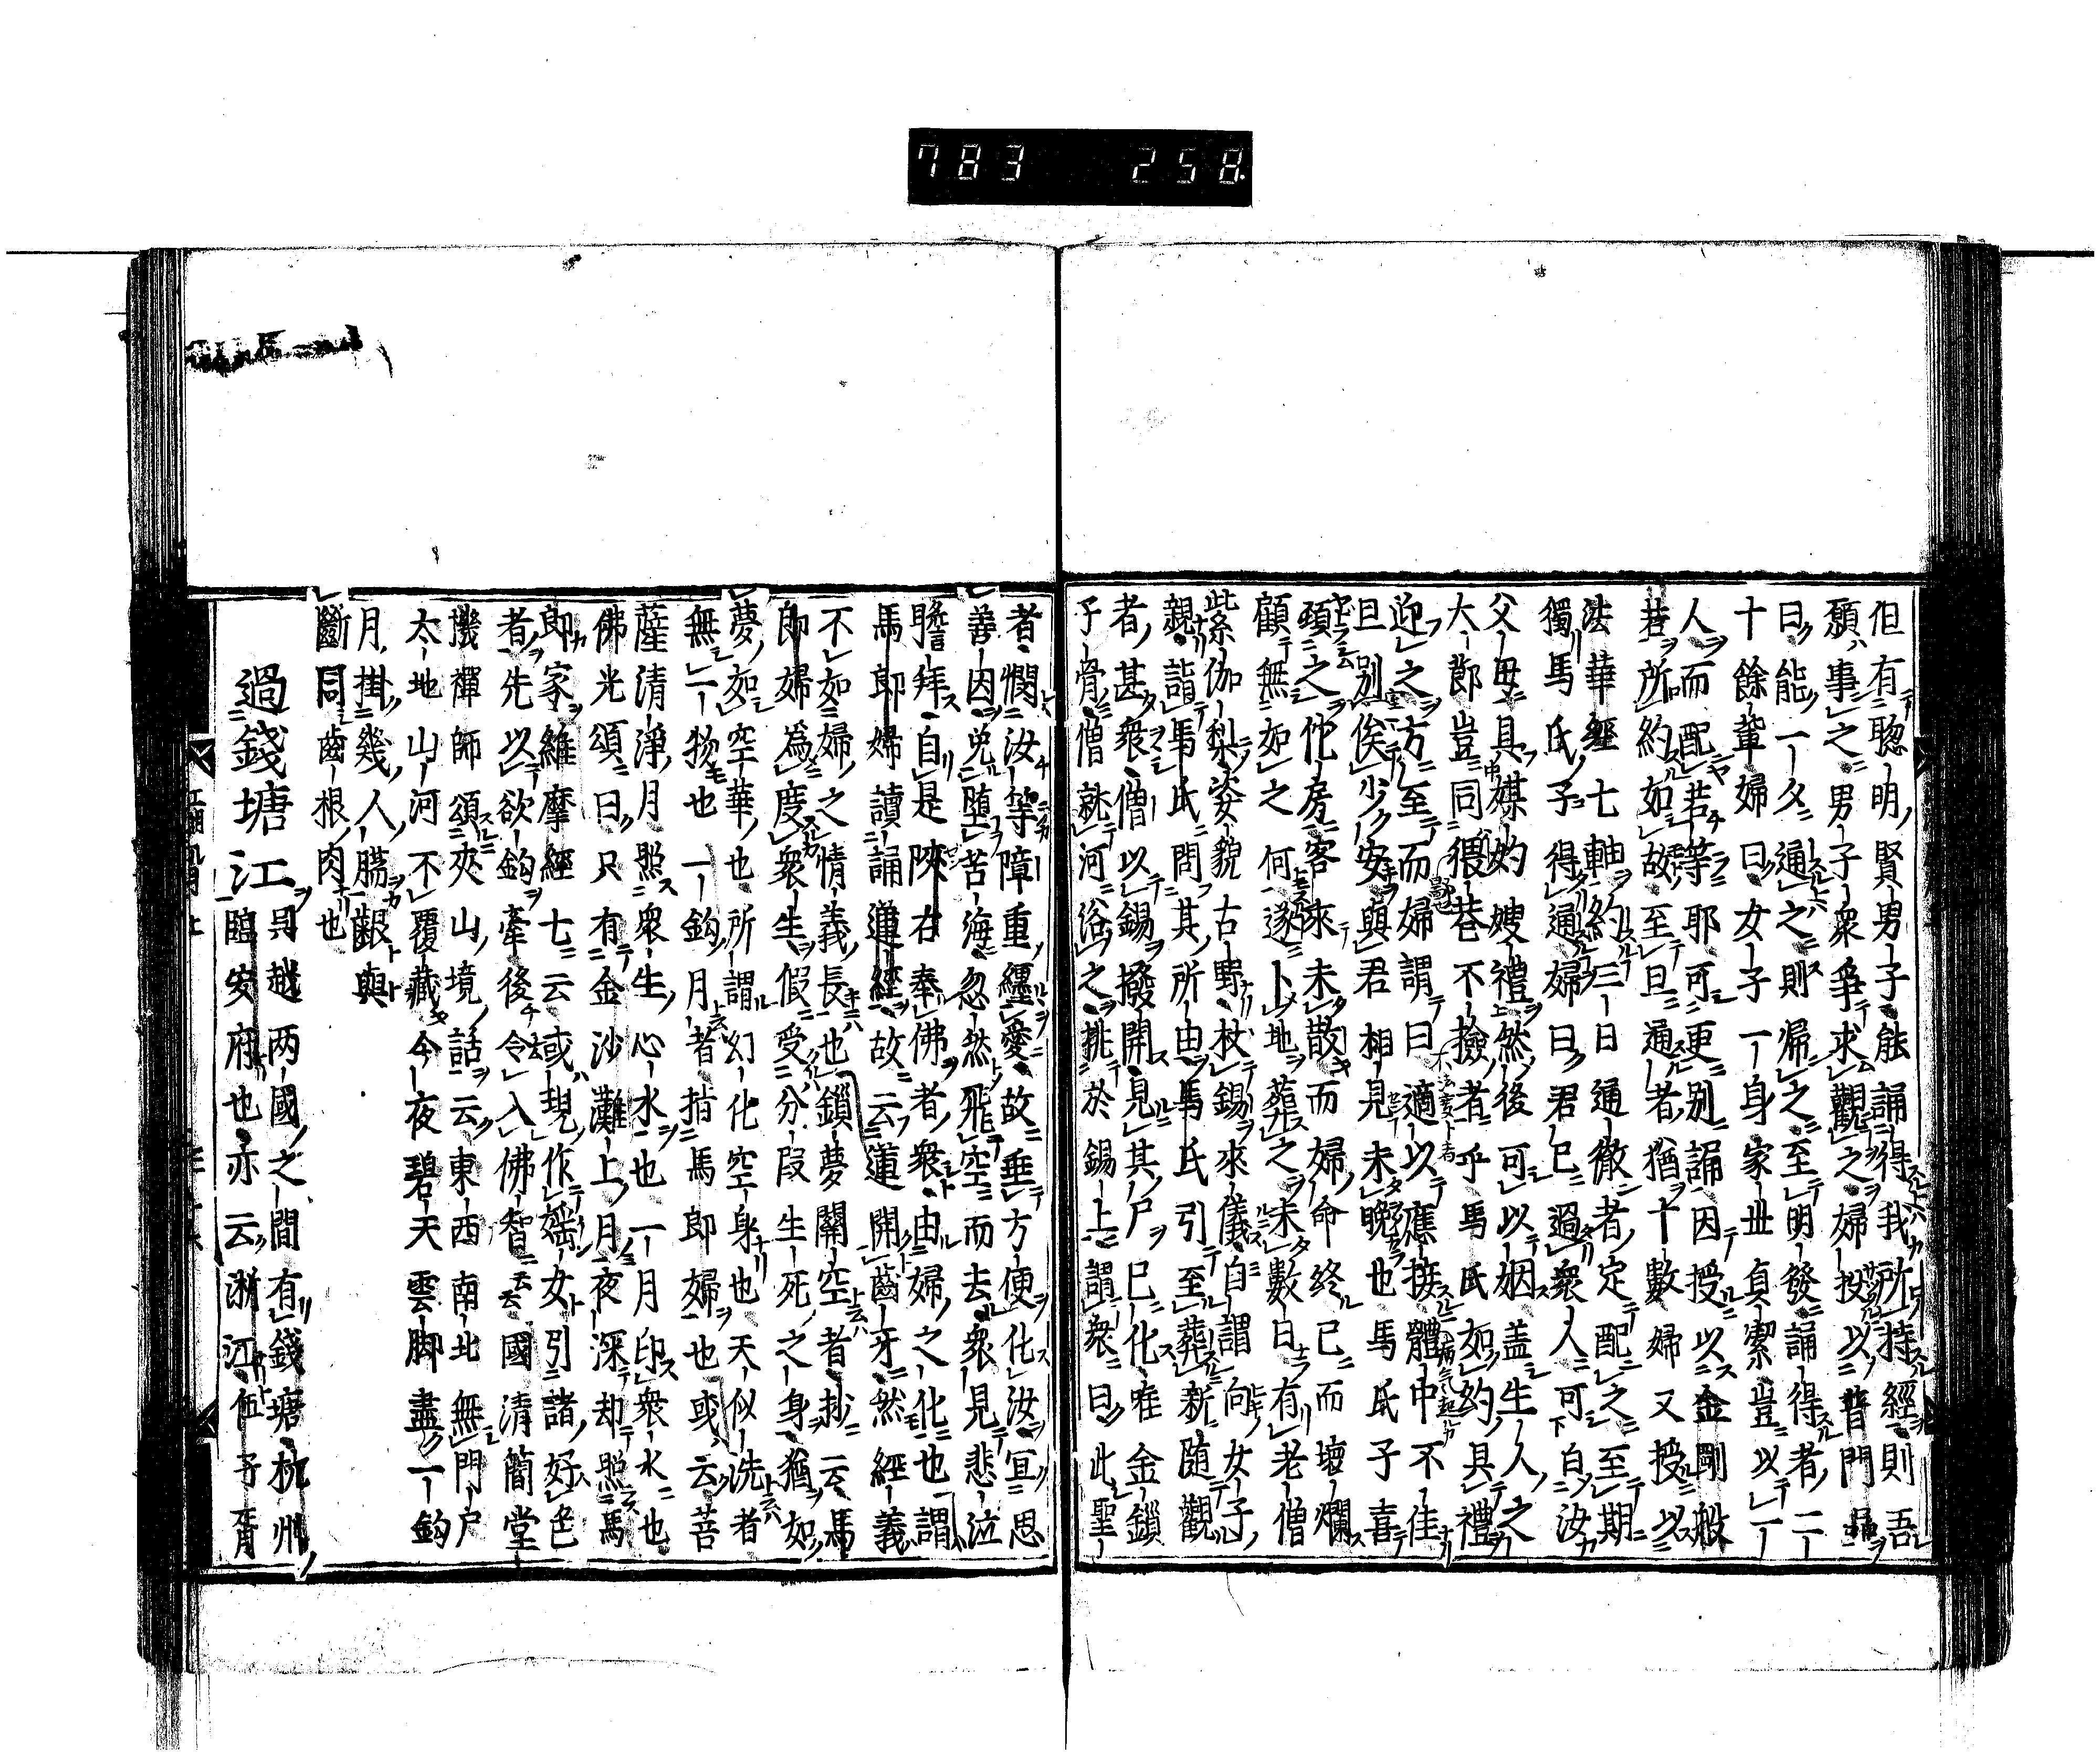 783 258
但有聰明賢男子能誦得我所持經則吾
願事之男子衆爭求觀之婦授以普門品
曰能一夕通之則歸之至明發誦得者二
十餘輩婦曰女子一身家世貞潔豈以一
人而配若等耶可更別誦因授以金剛般
若所約如故至旦通者猶十數婦又授以
法華經七軸約三日通徹者定配之至期
獨馬氏子得通婦曰君已過衆人可白汝
父母具媒妁嫂禮然後可以姻盖生人之
大節豈同猥巷不撿者乎馬氏如約具禮
迎之方至而婦謂曰適以應接體中不佳
且別俟少安與君相見未晩也馬氏子喜
頤之佗房客來未散而婦命終已而壞爛
顧無如之何遂卜地葬之未數日有老僧
紫伽梨姿貌古野杖錫來儀自謂向女子
親詣馬氏問其所由馬氏引至葬所随觀
者甚衆僧以錫撥開見其尸已化唯金鎖
子骨僧就河浴之挑於錫上謂衆曰此聖
者憫汝等障重纏愛故垂方便化汝宜思
善因免堕苦海忽然飛空而去衆見悲泣
瞻拜自是陝右奉佛者衆由婦之化也謂
馬郎婦讀誦蓮經故云蓮開齒牙然經義
不如婦之情義長也鎖夢關空者抄云馬
郎婦爲度衆生假受分段生死之身猶如
夢如空華也所謂幻化空身也天似洗者
無一物也一鈎月者指馬郎婦也或云菩
薩清淨月照衆生心水也一月印衆水也
佛光頌曰只有金沙灘上月夜深却照馬
郎家維摩經七云或現作婬女引諸好色
者先以欲鈎牽後令入佛智云云國清簡堂
機禪師頌夾山境話云東西南北無門戸
大地山河不覆藏今夜碧天雲脚盡一鈎
月掛幾人腸齦與
斷同齒根肉也
過錢塘江 呉越两國之間有錢塘杭州
臨安府也亦云淛江伍子胥